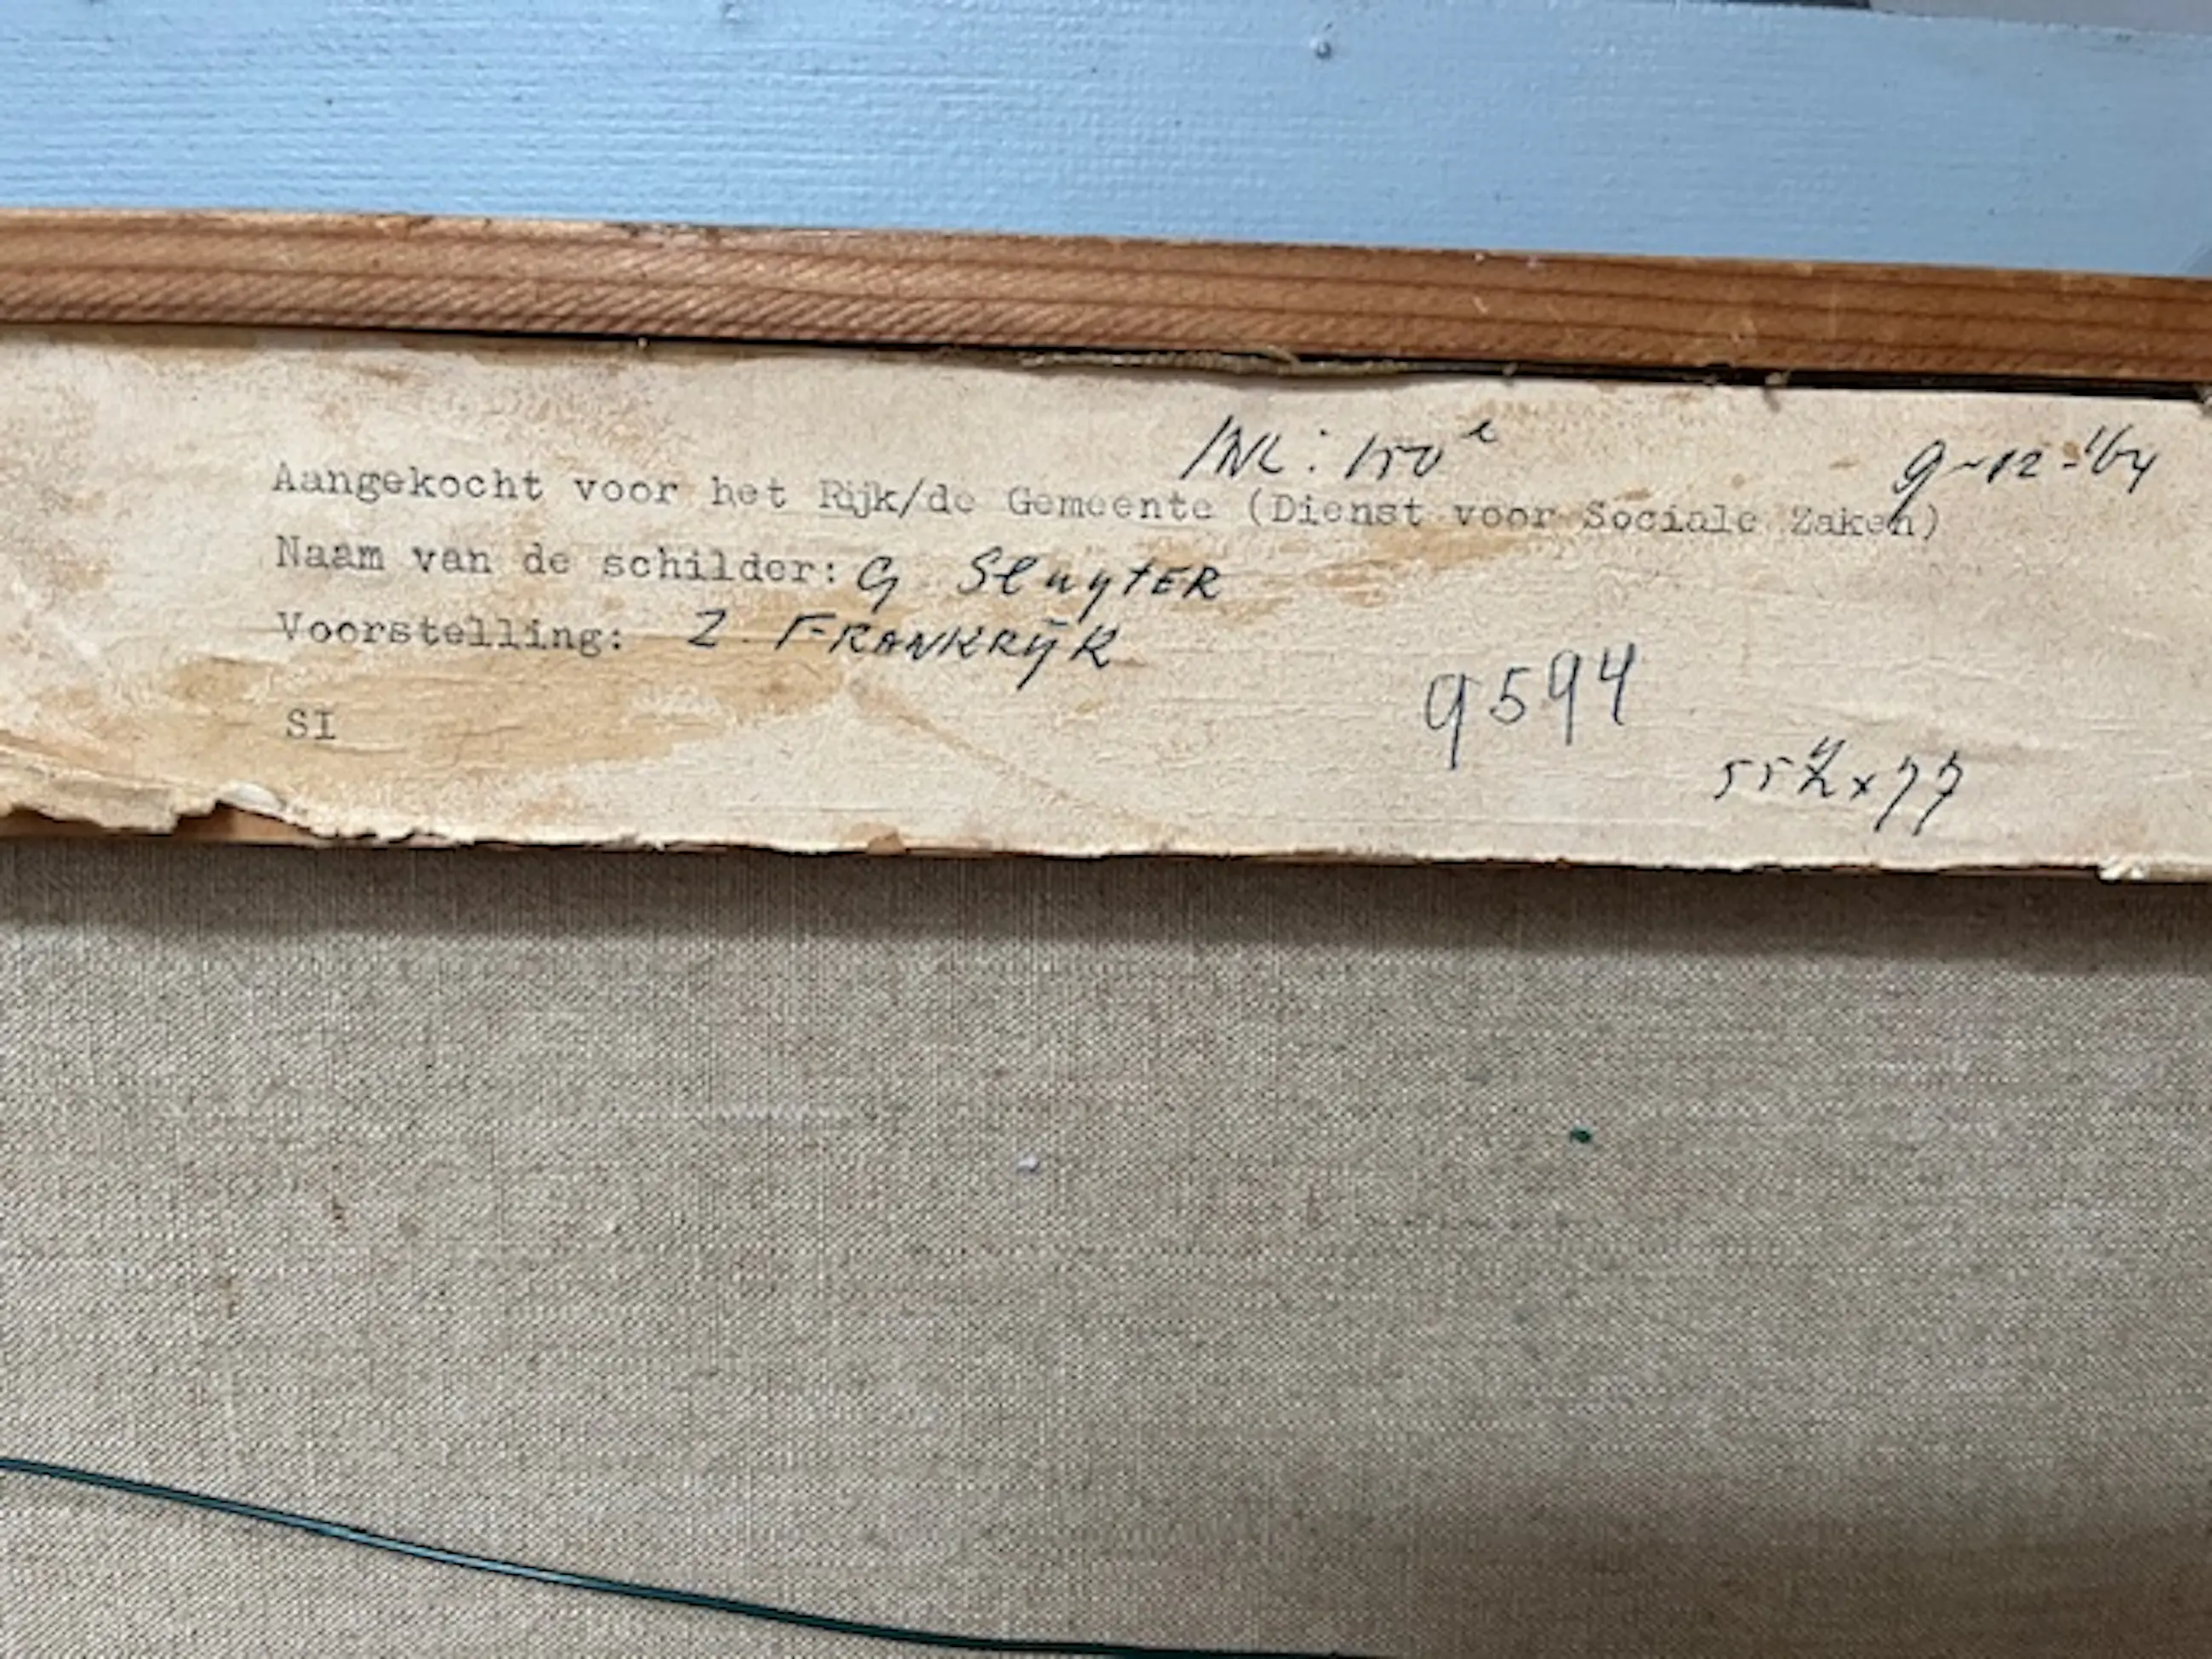 9-12-'64
Aangekocht voor het Rijk/de Gemeente (Dienst voor Sociale Zaken)
Naam van de schilder: G Sluyter
Voorstelling: Z. FRANKRIJK
9594
SI
x 77